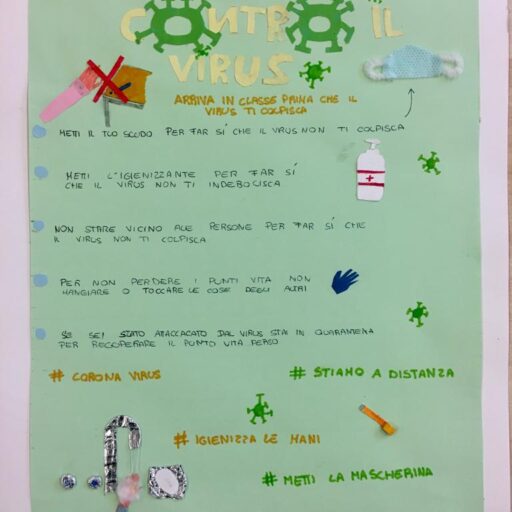 CONTRO IL
VIRUS
ARRIVA IN CLASSE PRIMA CHE IL
VIRUS TI COLPISCA
METTI IL TUO SCUDO PER FAR SÍ CHE IL VIRUS NON TI COLPISCA
METTI L'IGIENIZZANTE PER FAR SÍ
CHE IL VIRUS NON TI INDEBOLISCA
NON STARE VICINO ALLE PERSONE PER FAR SÍ CHE
IL VIRUS NON TI COLPISCA
PER NON PERDERE I PUNTI VITA NON
MANGIARE O TOCCARE LE COSE DEGLI ALTRI
SE SEI STATO ATACCACATO DAL VIRUS STAI IN QUARANTENA
PER RECUPERARE IL PUNTO VITA PERSO
# CORONA VIRUS
# STIAMO A DISTANZA
# IGIENIZZA LE MANI
# METTI LA MASCHERINA